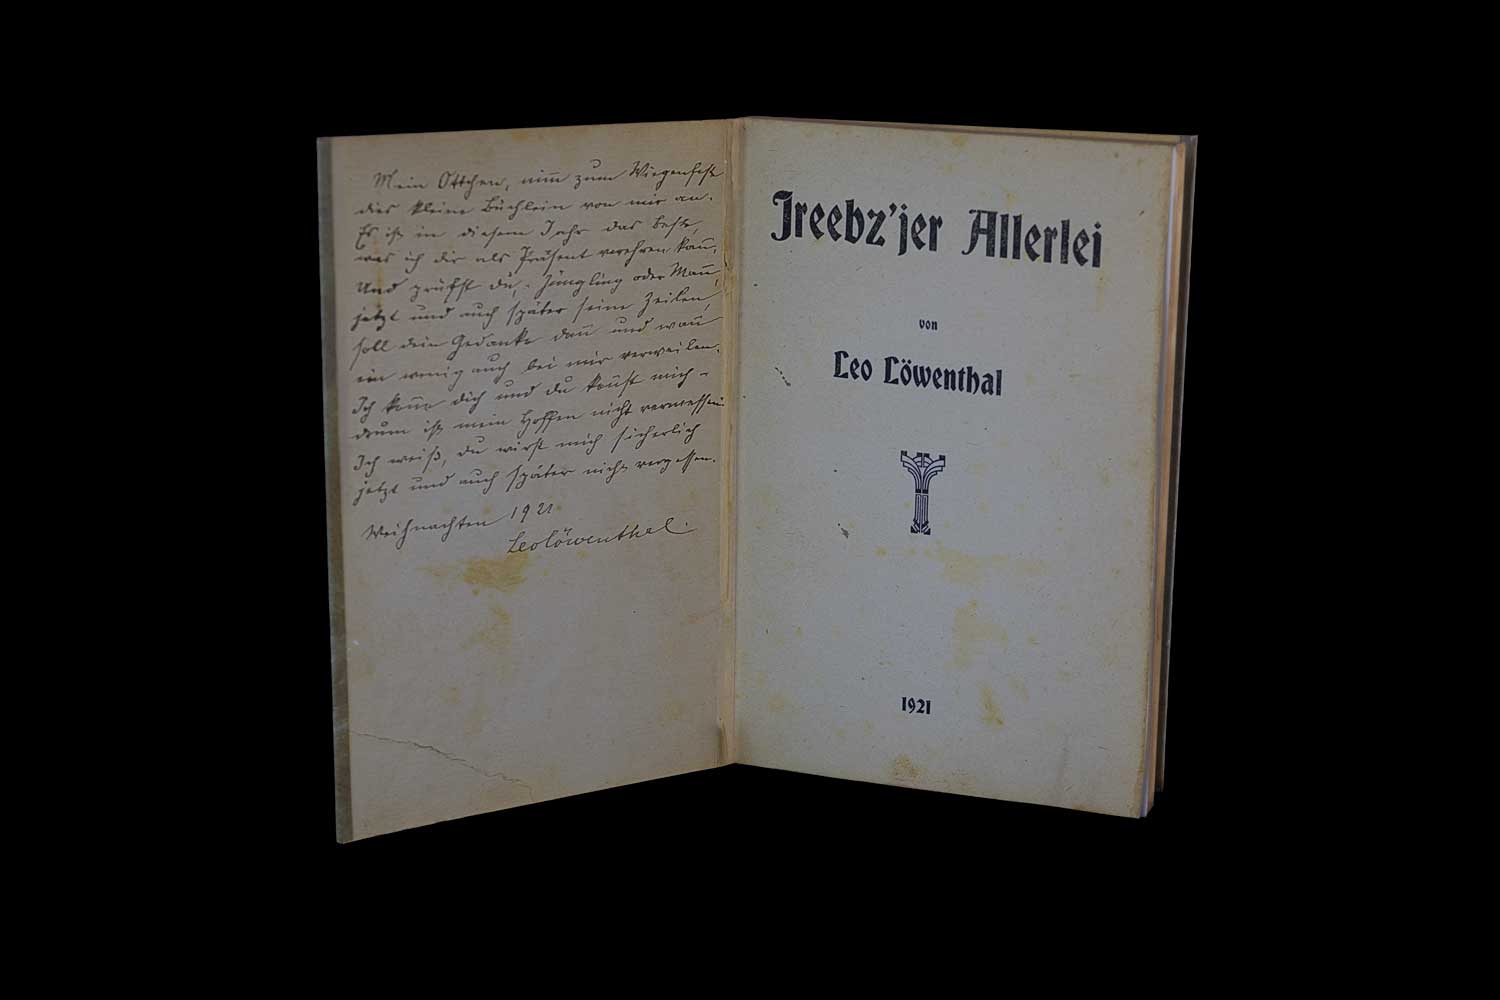 Mein Ottchen, nim̅ zum Wiegenfeste
dies kleine Büchlein von mir an.
Es ist in diesem Jahr das beste,
was ich dir als Präsent verehren kan̅,
Und prüfst du, - Jüngling oder Man̅,
jetzt und auch später seine Zeilen,
soll dein Gedanke dan̅ und wan̅
ein wenig auch bei mir verweilen.
Ich kenne dich und du kennst mich -
drum ist mein Hoffen nicht vermessen:
Ich weiß, du wirst mich sicherlich
jetzt und auch später nicht vergessen.
Weihnachten 1921
Leo Löwenthal.
Jreebz'jer Allerlei
von
Leo Löwenthal
1921